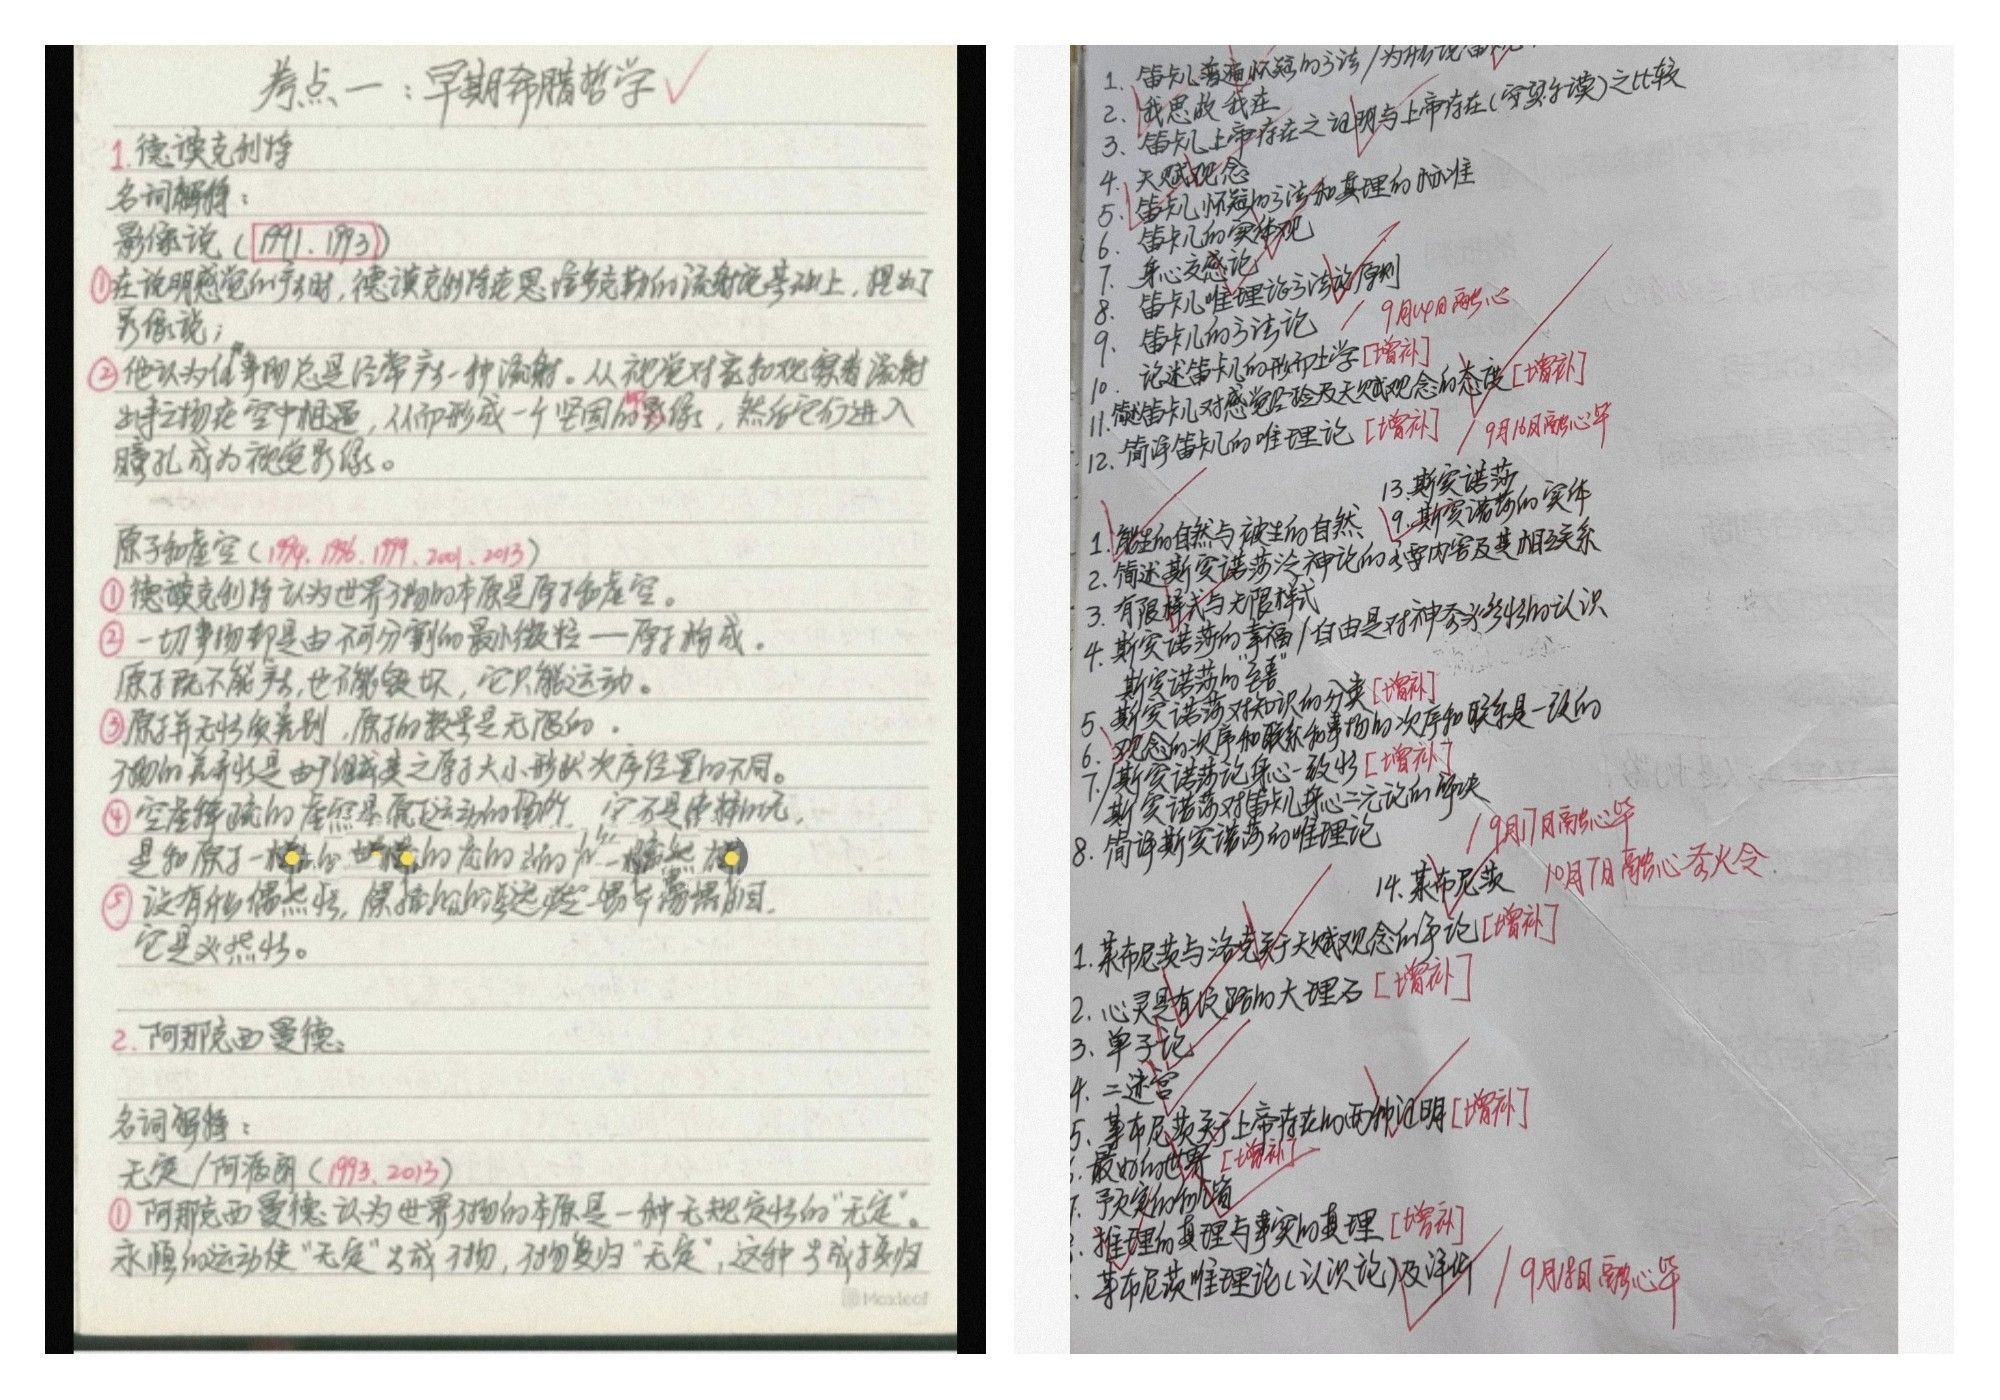 考点一：早期希腊哲学
1. 德谟克利特
名词解释：
影像说（1991、1993）
①在说明感觉的产生时，德谟克利特在恩培多克勒的流射说基础上，提出了
影像说；
②他认为任何事物总是经常产生一种流射。从视觉对象和观察者流射
出事物在空中相遇，从而形成一个坚固的影像，然后它们进入
瞳孔成为视觉影像。
原子和虚空（1994、1996、1999、2001、2013）
①德谟克利特认为世界万物的本原是原子和虚空。
②一切事物都是由不可分割的最小微粒——原子构成。
原子既不能产生，也不能毁坏，它只能运动。
③原子并无性质差别，原子的数量是无限的。
万物的差异性是由于组成其之原子大小形状次序位置的不同。
④空虚稀疏的虚空是原子运动的场所，它不是绝对的无，
是和原子一样
⑤没有偶然性，原子
它是必然性。
2. 阿那克西曼德
名词解释：
无定/阿派朗（1993、2013）
①阿那克西曼德认为世界万物的本原是一种无规定性的“无定”。
永恒的运动使“无定”生成万物，万物复归“无定”，这种生成与复归
Maxleaf
1. 笛卡儿普遍怀疑的方法/为什么说笛卡儿
2. 我思故我在
3. 笛卡儿上帝存在之证明与上帝存在（安瑟尔谟）之比较
4. 天赋观念
5. 笛卡儿怀疑的方法和真理的标准
6. 笛卡儿的实体观
7. 身心交感论
8. 笛卡儿唯理论方法论原则
9. 笛卡儿的方法论 / 9月14日融心
10. 论述笛卡儿的形而上学[增补]
11. 简述笛卡儿对感觉经验及天赋观念的态度[增补]
12. 简评笛卡儿的唯理论[增补] / 9月16日融心毕
13. 斯宾诺莎
1. 能生的自然与被生的自然 9. 斯宾诺莎的实体
2. 简述斯宾诺莎泛神论的主要内容及其相互关系
3. 有限样式与无限样式
4. 斯宾诺莎的幸福/自由是对神永恒必然性的认识
斯宾诺莎的“至善”
5. 斯宾诺莎对知识的分类[增补]
6. 观念的次序和联系和事物的次序和联系是一致的
7. 斯宾诺莎论身心一致性[增补]
斯宾诺莎对笛卡儿身心二元论的解决
8. 简评斯宾诺莎的唯理论 / 9月17日融心毕
14. 莱布尼茨 10月7日融心圣火令
1. 莱布尼茨与洛克关于天赋观念的争论[增补]
2. 心灵是有纹路的大理石[增补]
3. 单子论
4. 二迷宫
5. 莱布尼茨关于上帝存在的两种证明[增补]
最好的世界[增补]
7. 预定的和谐
推理的真理与事实的真理[增补]
莱布尼茨唯理论（认识论）及评价 / 9月18日融心毕